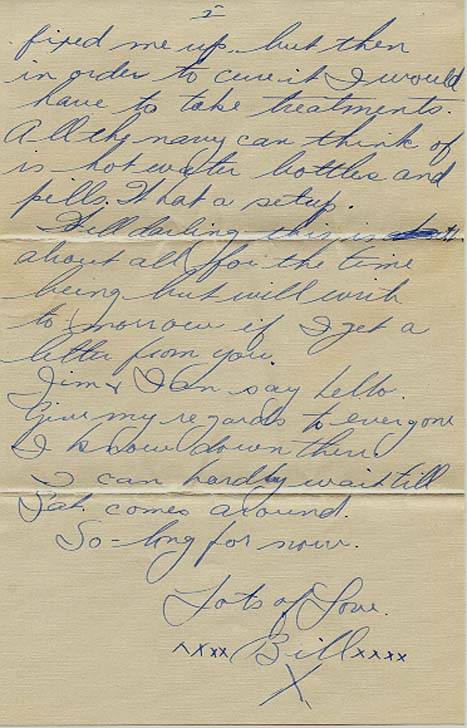 2
fixed me up, but then
in order to cure it I would
have to take treatments.
All the navy can think of
is hot water bottles and
pills. What a setup.
Well darling this is
about all for the time
being but will write
to-morrow if I get a
letter from you.
Jim & Ian say hello.
Give my regards to everyone
I know down there.
I can hardly wait till
Sat. comes around.
So-long for now.
Lots of Love.
xxxx Bill xxxx
X